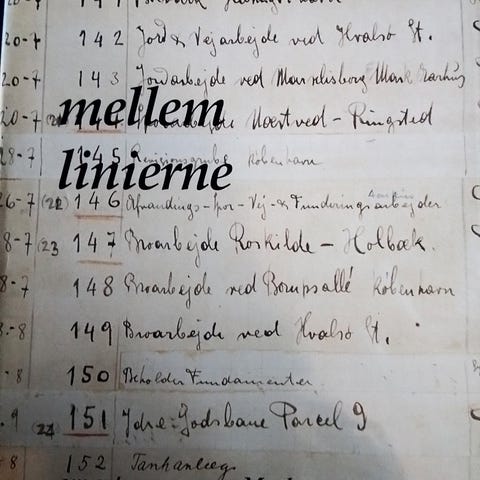 20-7 142 Jord & Vejarbejde ved Hvalsö St.
20-7 143 Jordarbejde ved Marselisborg Mark Aarhus
mellem
20-7 Næstved - Ringsted
linierne
28-7 145 Revisionsgrube København
26-7 (22) 146 Afvandings-Spor-Vej-& Funderingsarbejder
8-7 (23 147 Broarbejde Roskilde - Holbæk.
8-7 148 Broarbejde ved Bomps allé København
8.-8 149 Broarbejde ved Hvalsö St.
-8 150 Beholder Fundamenter
.9 (24 151 Ydre-Godsbane Parcel 9
-8 152 Tankanlæg